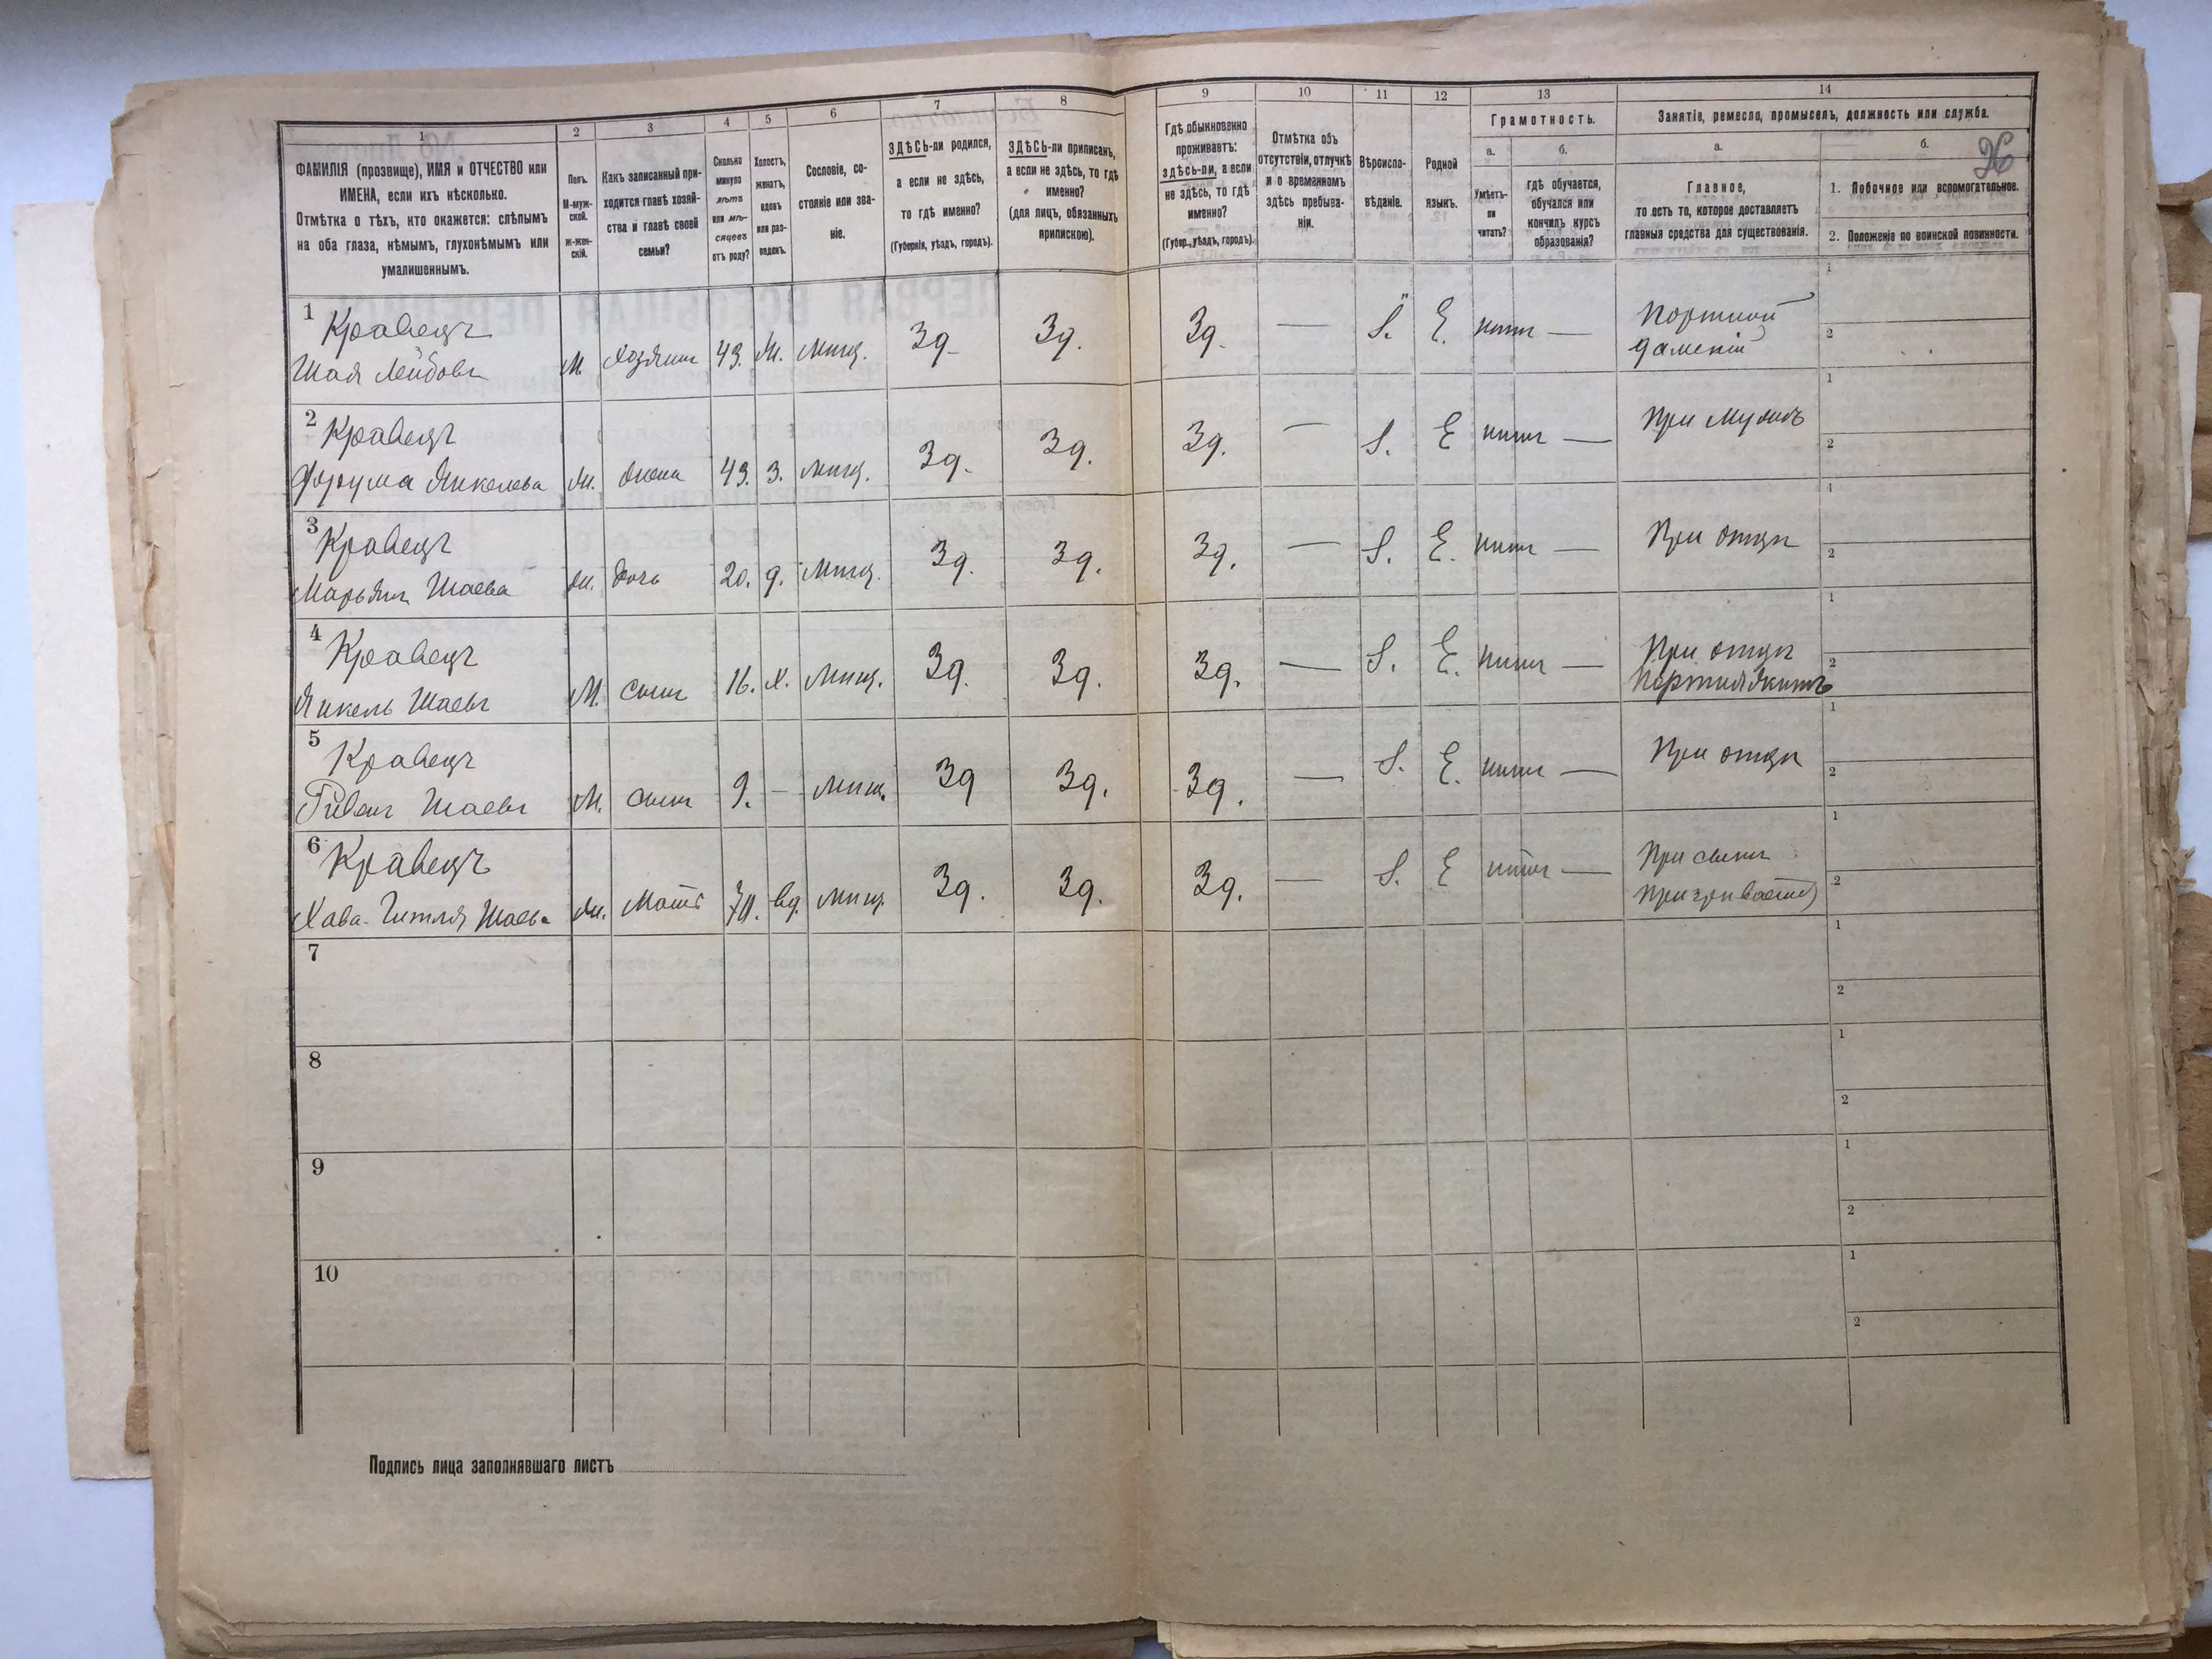 1 2 3 4 5 6 7 8 9 10 11 12 13 14
ФАМИЛІЯ (прозвище), ИМЯ и ОТЧЕСТВО или
ИМЕНА, если ихъ нѣсколько.
Отмѣтка о тѣхъ, кто окажется: слѣпымъ
на оба глаза, нѣмымъ, глухонѣмымъ или
умалишеннымъ.
Полъ.
М-муж-
ской.
Ж-жен-
скій.
Какъ записанный при-
ходится главѣ хозяй-
ства и главѣ своей
семьи?
Сколько
минуло
лѣтъ
или мѣ-
сяцевъ
отъ роду?
Холостъ,
женатъ,
вдовъ
или раз-
веденъ.
Сословіе, со-
стояніе или зва-
ніе.
ЗДѢСЬ-ли родился,
а если не здѣсь,
то гдѣ именно?
(Губернія, уѣздъ, городъ).
ЗДѢСЬ-ли приписанъ,
а если не здѣсь, то гдѣ
именно?
(для лицъ, обязанныхъ
припискою).
Гдѣ обыкновенно
проживаетъ:
здѣсь-ли, а если
не здѣсь, то гдѣ
именно?
(Губер., уѣздъ, городъ).
Отмѣтка объ
отсутствіи, отлучкѣ
и о временномъ
здѣсь пребыва-
ніи.
Вѣроиспо-
вѣданіе.
Родной
языкъ.
Грамотность.
а.
Умѣетъ-
ли
читать?
б.
гдѣ обучается,
обучался или
кончилъ курсъ
образованія?
Занятіе, ремесло, промыселъ, должность или служба.
а.
Главное,
то есть то, которое доставляетъ
главныя средства для существованія.
б.
1. Побочное или вспомогательное.
2. Положеніе по воинской повинности.
1 Кравецъ
Шая Лейбовъ М. Хозяинъ 43. Ж. Мѣщ. Зд. Зд. Зд. — І. Е. нѣтъ — Портной
дамскій
2 Кравецъ
Фрума Янкелева Ж. Жена 43. З. Мѣщ. Зд. Зд. Зд. — І. Е нѣтъ — При мужѣ
3 Кравецъ
Марьямъ Шаева Ж. Дочь 20. д. Мѣщ. Зд. Зд. Зд. — І. Е. нѣтъ — При отцѣ
4 Кравецъ
Янкель Шаевъ М. Сынъ 16. Х. Мѣщ. Зд. Зд. Зд. — І. Е. нѣтъ — При отцѣ
5 Кравецъ
Ривенъ Шаевъ М. Сынъ 9. — Мѣщ. Зд Зд. Зд. — І. Е. нѣтъ — При отцѣ
6 Кравецъ
Хава-Гитля Шаева Ж. Мать 70. вд. Мѣщ Зд. Зд. Зд. — І. Е нѣтъ — При сынѣ
7
8
9
10
Подпись лица заполнявшаго листъ